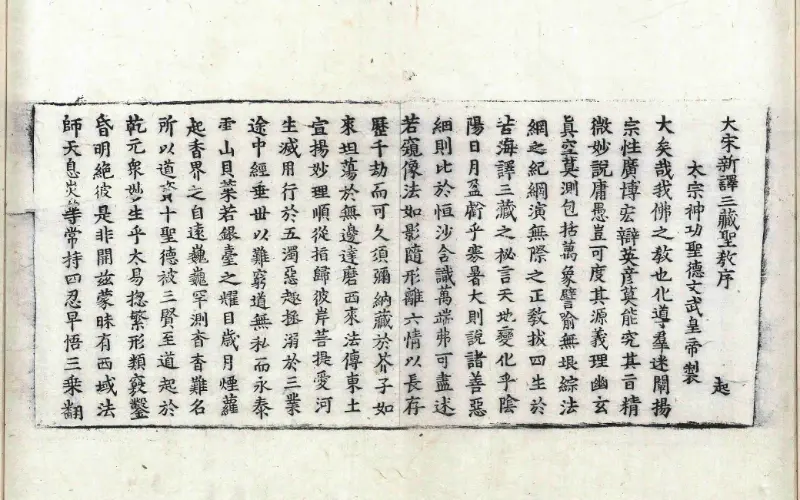 大宋新譯三藏聖教序 起
太宗神功聖德文武皇帝製
大矣哉我佛之教也化導羣迷闡揚
宗性廣博宏辯英彦莫能究其旨精
微妙說庸愚豈可度其源義理幽玄
真空莫測包括萬象譬喻無垠綜法
網之紀綱演無際之正教拔四生於
苦海譯三藏之祕言天地變化乎陰
陽日月盈虧乎寒暑大則說諸善惡
細則比於恒沙含識萬端弗可盡述
若窺像法如影隨形離六情以長存
歷千劫而可久須彌納藏於芥子如
來坦蕩於無邊達磨西來法傳東土
宣揚妙理順從指歸彼岸菩提愛河
生滅用行於五濁惡趣拯溺於三業
途中經垂世以難窮道無私而永泰
雪山貝葉若銀臺之耀目歲月煙蘿
起香界之自遠巍巍罕測杳杳難名
所以道資十聖德被三賢至道起於
乾元衆妙生乎太易揔繁形類竅鑿
昏明絕彼是非開兹蒙昧有西域法
師天息災等常持四忍早悟三乘翻